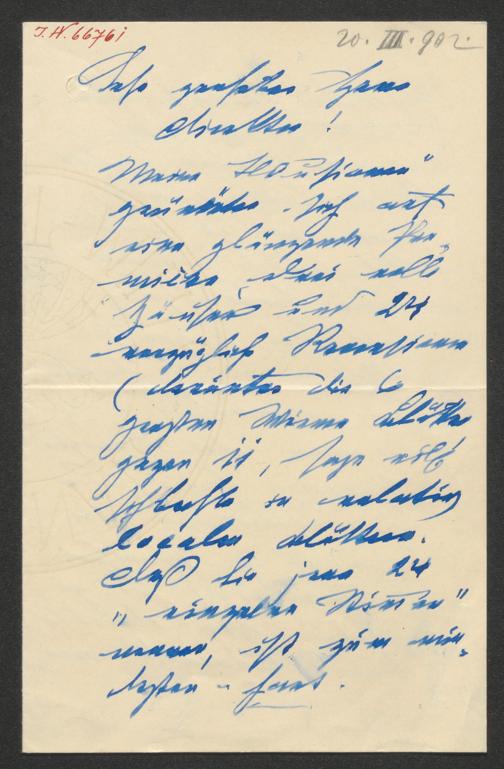 J.N. 66761
20. III. 902.
Sehr geehrter Herr
Direktor!
Meine "Illusionen"
gründeten sich auf
eine glänzende Pre-
mière, drei volle
Häuser und 24
vorzügliche Recensionen
(darunter die 6
großen Wiener Blätter
gegen 11, sage elf
schlechte in relativ
localen Blättern.
Daß Sie jene 24
"einzelne Stimmen"
nennen, ist zum min-
desten – hart.